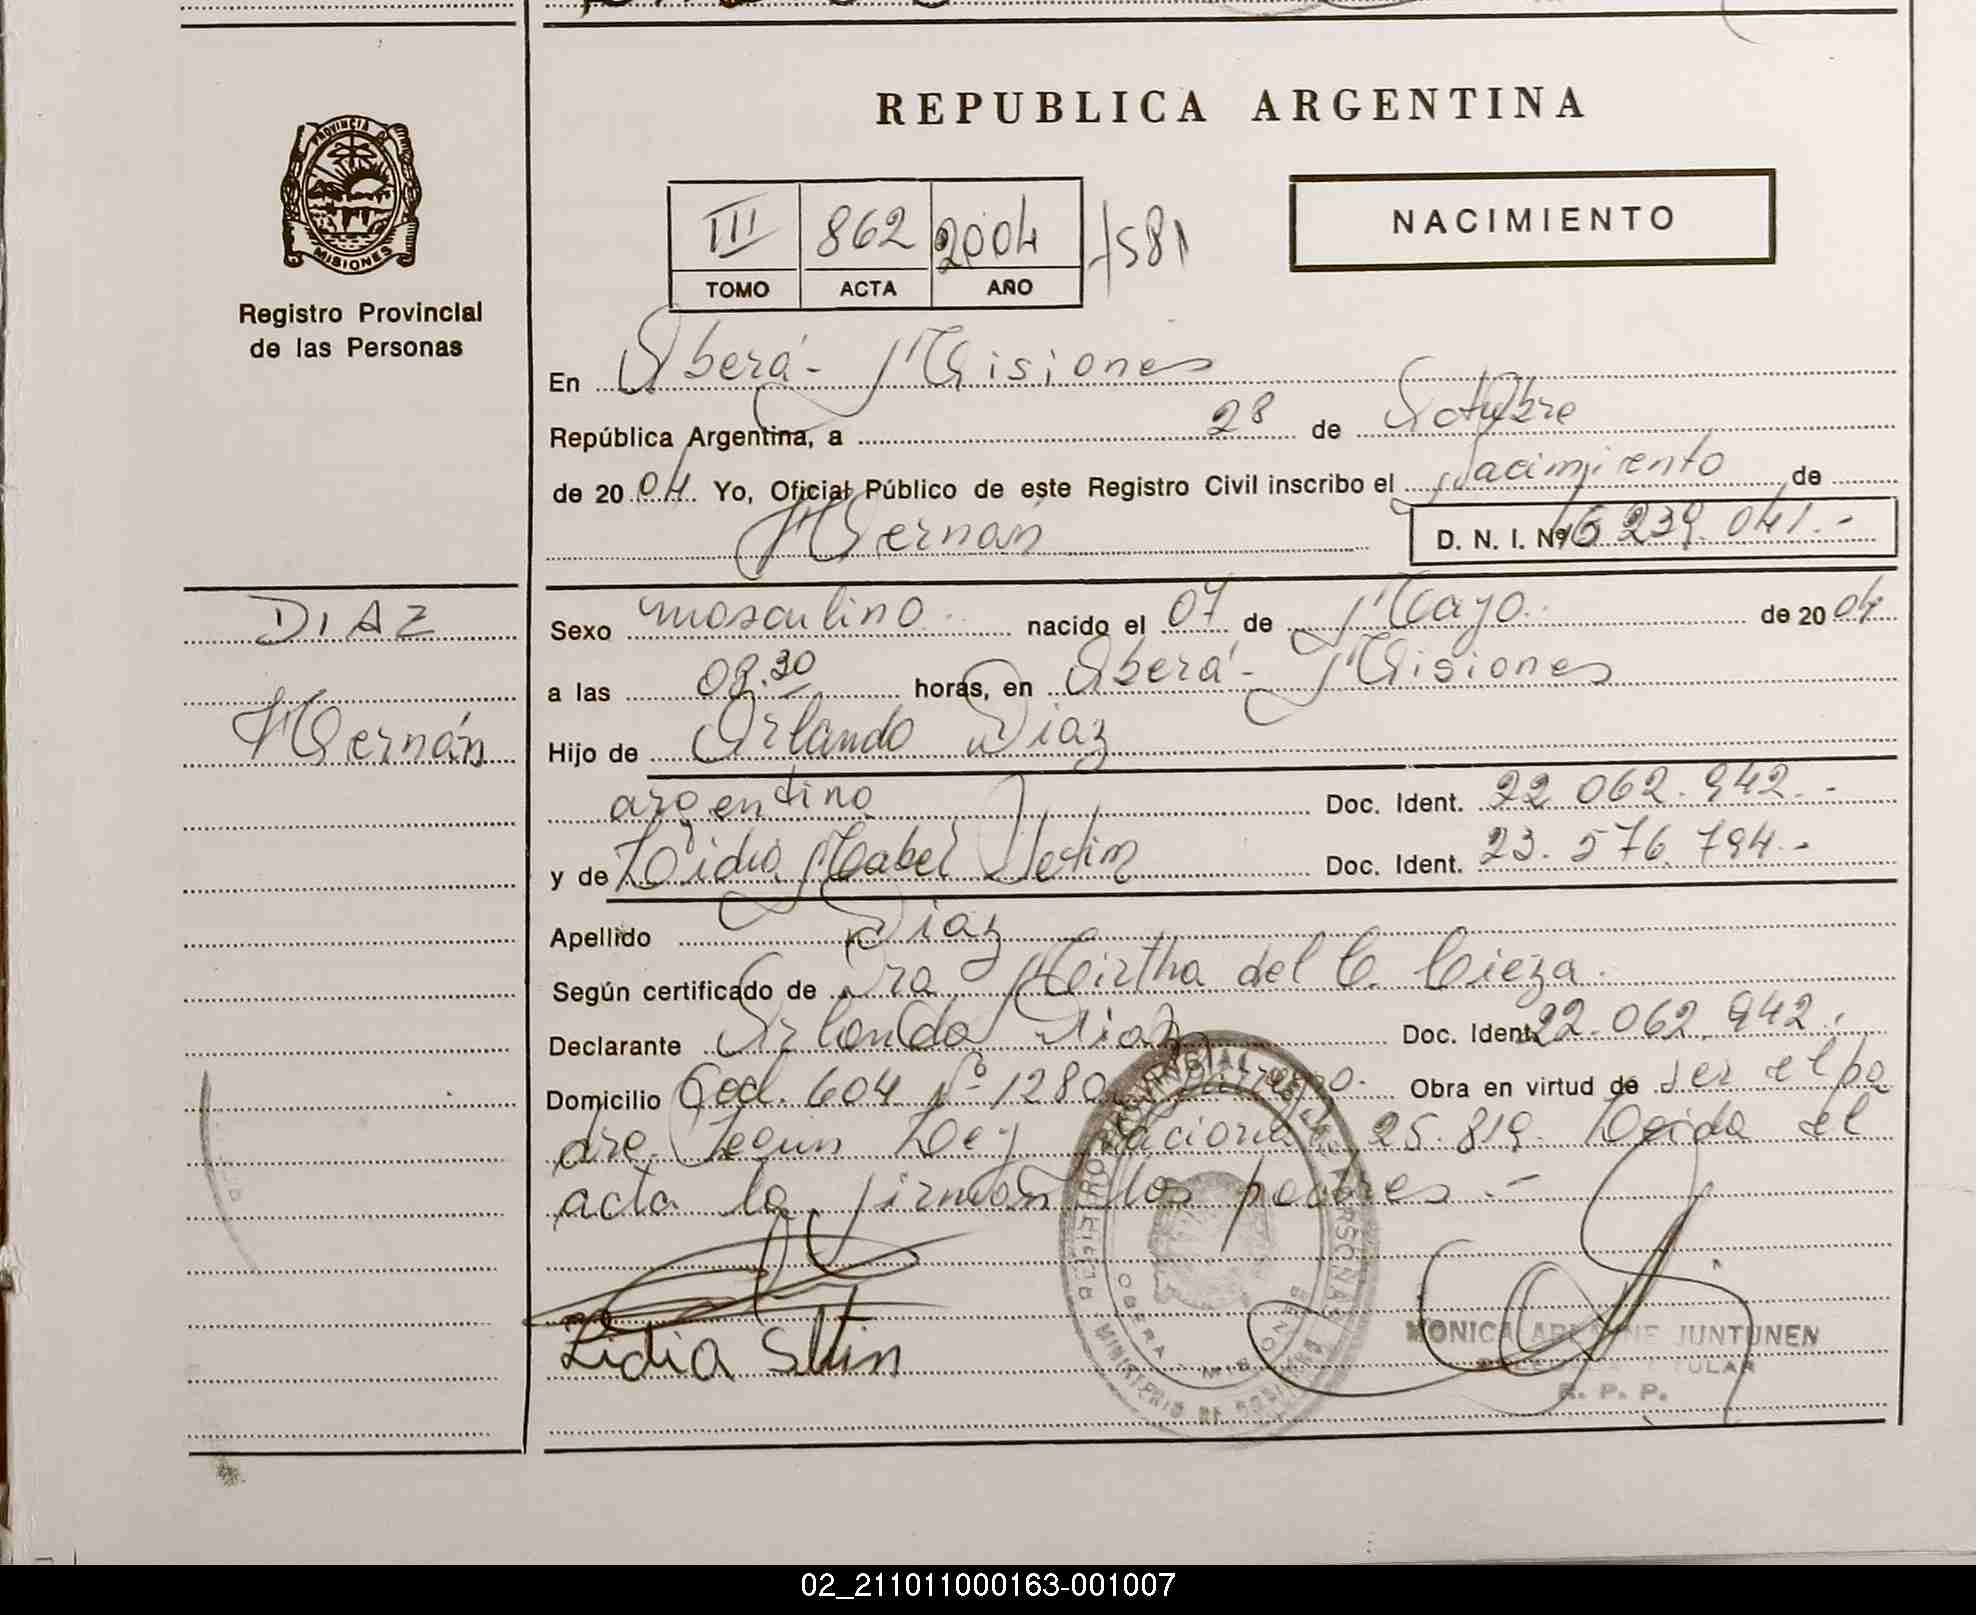 REPUBLICA ARGENTINA
PROVINCIA D
MISIONES
Registro Provincial
de las Personas
III 862 2004 f581
TOMO ACTA AÑO
NACIMIENTO
En Oberá - Misiones
República Argentina, a 28 de Octubre
de 2004 Yo, Oficial Público de este Registro Civil inscribo el Nacimiento de
Hernán
D. N. I. Nº 46 239. 041.-
DIAZ
Sexo masculino. nacido el 07 de Mayo. de 2004
a las 08.30 horas, en Oberá - Misiones
Hernán
Hijo de Orlando Diaz
argentino Doc. Ident. 22 062. 942.-
y de Lidia Mabel Doc. Ident. 23. 576 794.-
Apellido Diaz
Según certificado de Dra Mirtha del C. Cieza.
Declarante Orlando Diaz Doc. Ident. 22. 062. 942.
Domicilio 604 Nº 1280 Obra en virtud de ser el pa
dre. Según Ley Nacional 25. 819. Leida el
acta la firman los padres.-
Lidia
MONICA JUNTUNEN
TITULAR
R. P. P.
02_211011000163-001007